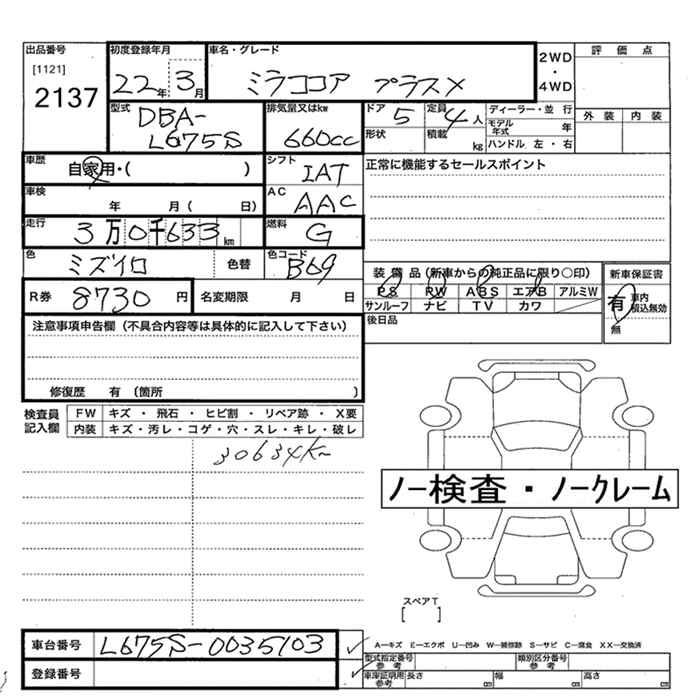 出品番号
[1121]
2137
初度登録年月
22年 3月
車名・グレード
ミラココア プラスX
2WD
・
4WD
評価点
外装 内装
型式
DBA-
L675S
排気量又はkw
660cc
ドア 5
定員 4人
形状
積載 kg
ディーラー・並行
モデル年式 年
ハンドル 左・右
車歴
自家用・( )
シフト
IAT
正常に機能するセールスポイント
車検
年 月( 日)
AC
AAC
走行
3万0千633km
燃料
G
色
ミズイロ
色替
色コード
B69
装備品(新車からの純正品に限り○印)
PS PW ABS エアB アルミW
サンルーフ ナビ TV カワ
後日品
新車保証書
有 車内積込無効
無
R券 8730円
名変期限 月 日
注意事項申告欄(不具合内容等は具体的に記入して下さい)
修復歴 有(箇所 )
検査員記入欄
FW キズ・飛石・ヒビ割・リペア跡・X要
内装 キズ・汚レ・コゲ・穴・スレ・キレ・破レ
30634K
ノー検査・ノークレーム
スペアT
[ ]
車台番号 L675S-0035103
登録番号
A―キズ E―エクボ U―凹み W―補修跡 S―サビ C―腐食 XX―交換済
型式指定番号
参考
類別区分番号
参考
車庫証明用
参考
長さ cm
幅 cm
高さ cm